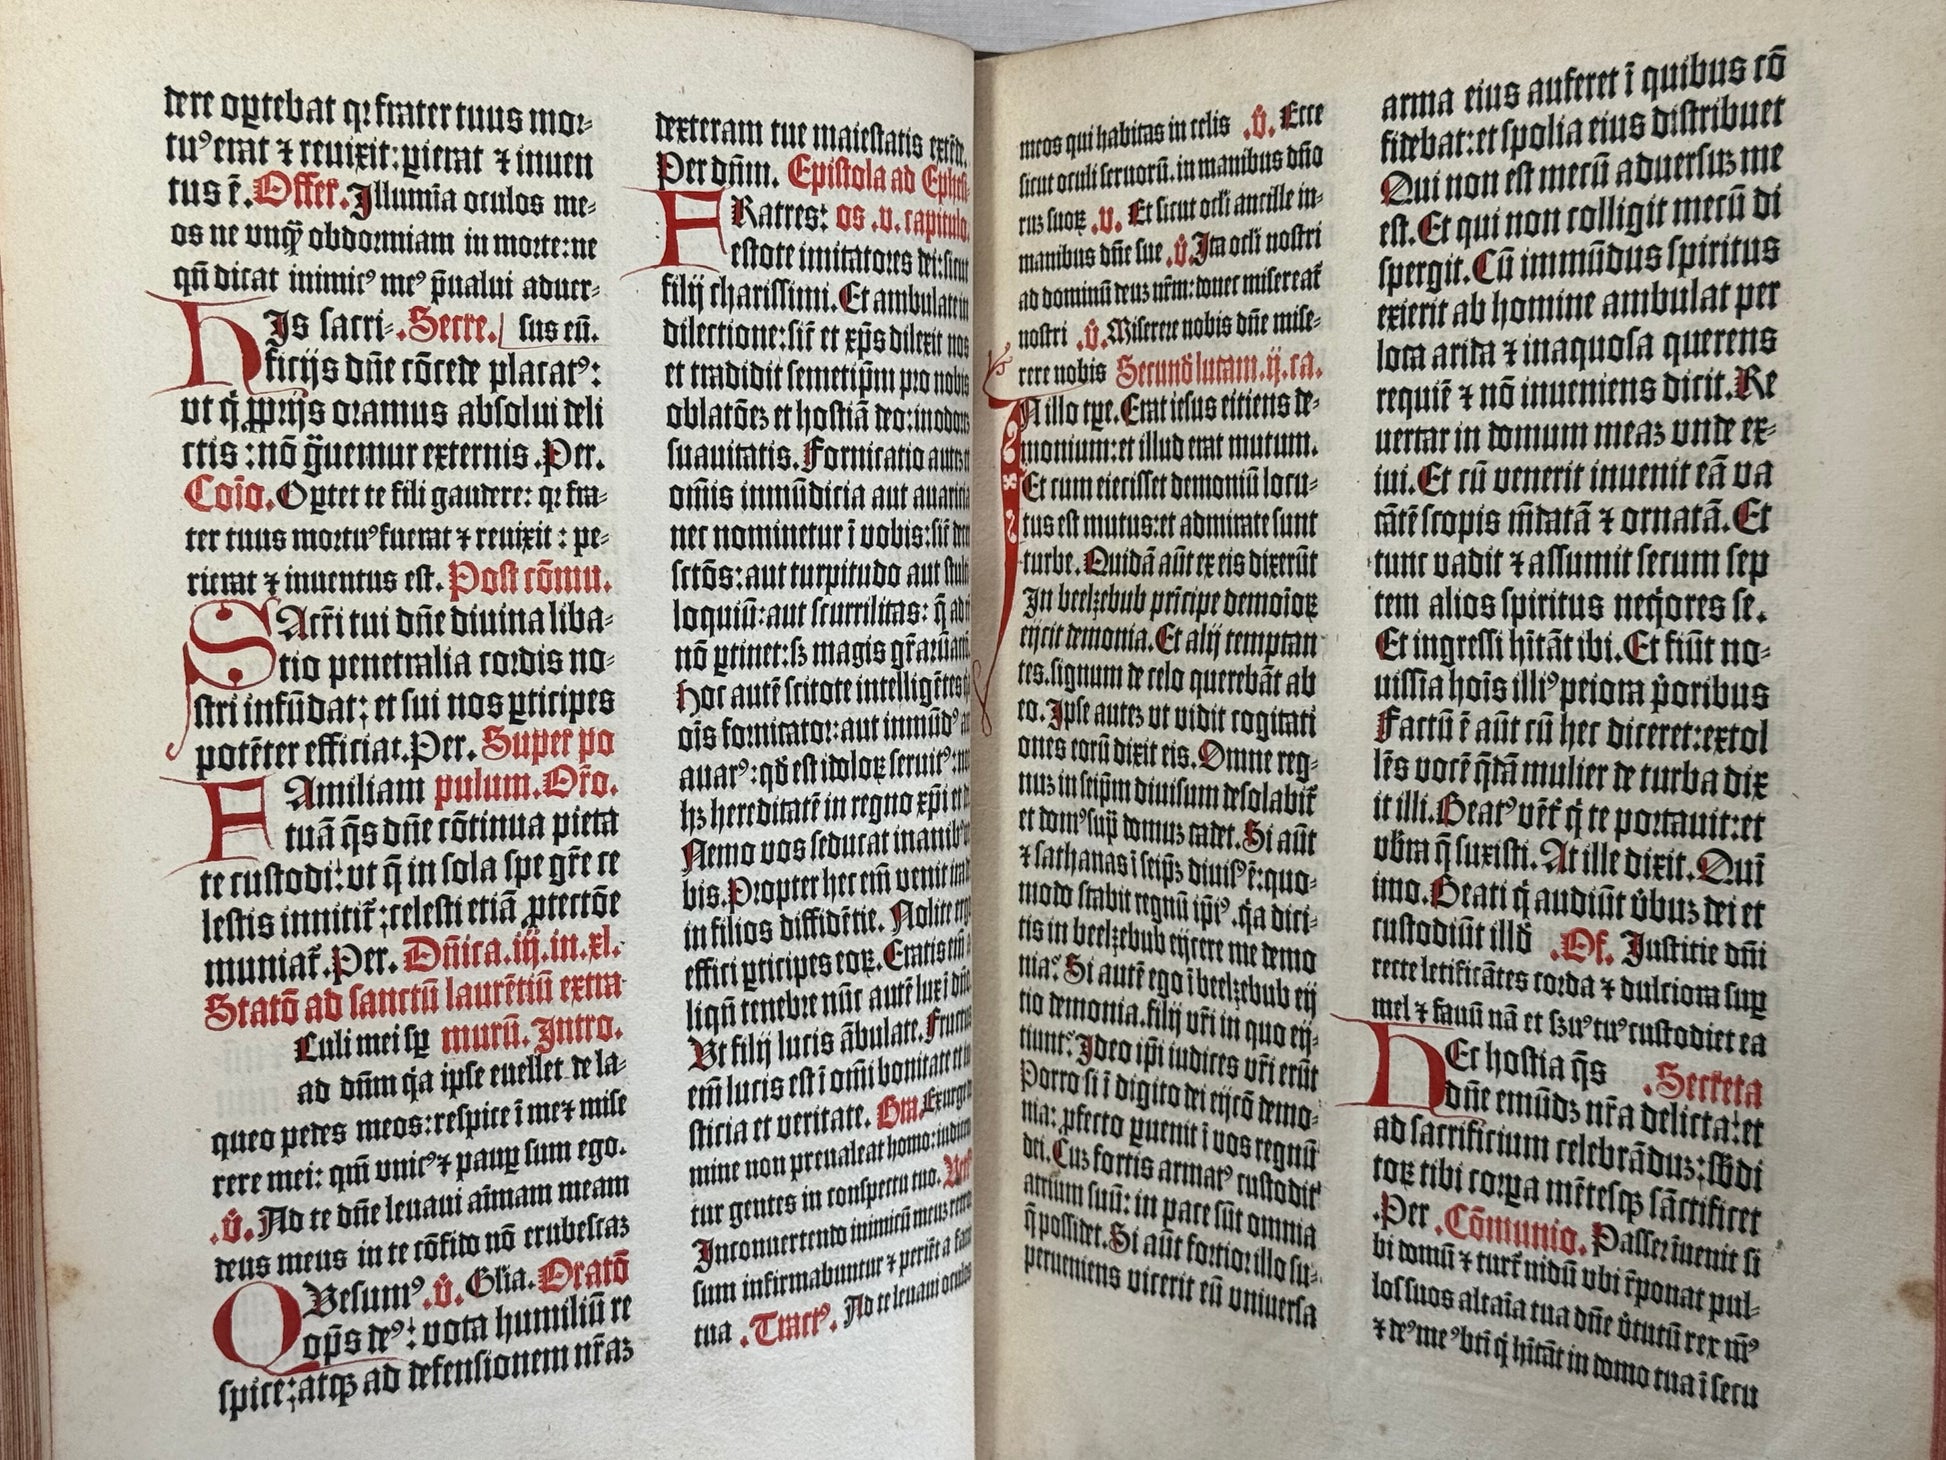 dere optebat qꝛ frater tuus moꝛ⸗
tuꝰ erat ⁊ reuixit: ꝑierat ⁊ inuen
tus ē. Offer̄. Illumīa oculos me⸗
os ne vnqꝫ̄ obdoꝛmiam in moꝛte: ne
qn̄ dicat inimicꝰ meꝰ p̄ualui aduer⸗
HIs sacri⸗. Secre. sus eū.
ficijs dn̄e cōcede placatꝰ:
vt q̇ ꝓprijs oꝛamus absolui deli
ctis: nō g̈uemur externis. Per.
Coīo. Optet te fili gaudere: qꝛ fra⸗
ter tuus moꝛtuꝰ fuerat ⁊ reuixit: pe⸗
rierat ⁊ inuentus est. Post cōmu.
SAcr̄i tui dn̄e diuina liba⸗
tio penetralia coꝛdis no⸗
stri infūdat: et sui nos ꝑticipes
potēter efficiat. Per. Super po
FAmiliam pulum. Oꝛ̄o.
tuā q̄s dn̄e cōtinua pieta
te custodi: vt q̄ in sola spe gr̄e ce
lestis innitit᷑: celesti etiā ꝓtectōe
muniat᷑. Per. Dn̄ica. iij. in. xl.
Statō ad sanctū laurētiū extra
Culi mei sꝑ murū. Intro.
ad dn̄m q̇a ipse euellet de la⸗
queo pedes meos: respice ī me ⁊ mise
rere mei: qm̄ vnicꝰ ⁊ pauꝑ sum ego.
.v̄. Ad te dn̄e leuaui aīmam meam
deus meus in te cōfido nō erubescaꝫ
QVesumꝰ .v̄. Glīa. Oꝛatō
oꝑ̄s deꝰ: vota humiliū re
spice: atqꝫ ad defensionem nr̄aꝫ
dexteram tue maiestatis extēde.
Per dn̄m. Epistola ad Ephesi
FRatres: os .v. capitulo.
estote imitatoꝛes dei: sicut
filij charissimi. Et ambulate in
dilectione: sic̄ et xp̄s dilexit nos
et tradidit semetip̄m pꝛo nobis
oblatōeꝫ et hostiā deo: in odoꝛē
suauitatis. Foꝛnicatio auteꝫ et
om̄is inmūdicia aut auaricia
nec nominetur ī vobis: sic̄ decet
sctōs: aut turpitudo aut stulti
loquiū: aut scurrilitas: q̄ ad rē
nō ꝑtinet: sꝫ magis gr̄aꝛū actiō
hoc autē scitote intelligētes
oīs foꝛnicatoꝛ: aut inmūdꝰ aut
auarꝰ: qd̄ est idoloꝝ seruitꝰ: nō
hꝫ hereditatē in regno xp̄i et dei
Nemo vos seducat inanibꝰ
bis. Pꝛopter hec em̄ venit ira
in filios diffidētie. Nolite ergo
effici ꝑticipes eoꝝ. Eratis em̄
liqn̄ tenebꝛe nūc autē lux ī dn̄o
Vt filij lucis ābulate. Fructus
em̄ lucis est ī om̄i bonitate et iu
sticia et veritate. Gra. Exurge
mine non preualeat homo: iudicen
tur gentes in conspectu tuo. Ver̄
Inconuertendo inimicū meuꝫ retroꝛ
sum infirmabuntur ⁊ perier̄t a facie
tua .Tractꝰ. Ad te leuaui oculos
meos qui habitas in celis .v̄. Ecce
sicut oculi seruoꝛū. in manibus dn̄o
ruꝫ suoꝝ .v. Et sicut ocl̄i ancille in⸗
manibus dn̄e sue .v̄. Ita ocl̄i nostri
ad dominū deuꝫ nr̄m: donec misereat᷑
nostri .v̄. Miserere nobis dn̄e mise⸗
rere nobis Secundō lucam. ij. ca.
IN illo tꝑe. Erat iesus eitiens de⸗
monium: et illud erat mutum.
Et cum eiecisset demoniū locu⸗
tus est mutus: et admirate sunt
turbe. Quidā aūt ex eis dixerūt
In beelzebub pꝛīcipe demoīoꝝ
eijcit demonia. Et alij temptan
tes. signum de celo querebāt ab
eo. Ipse auteꝫ vt vidit cogitati
ones eoꝛū dixit eis. Omne reg⸗
nuꝫ in seip̄m diuisum desolabit᷑
et domꝰ sup̄ domuꝫ cadet. Si aūt
⁊ sathanas ī seip̄ꝫ diuisꝰ ē: quo⸗
modo stabit regnū ip̄iꝰ. q̇a dici⸗
tis in beelzebub eijcere me demo
nia. Si autē ego ī beelzebub eij
cio demonia. filij vr̄i in quo eij⸗
ciunt: Ideo ip̄i iudices vr̄i erūt
Poꝛro si ī digito dei eijcō demo⸗
nia: ꝓfecto ꝑuenit ī vos regnū
dei. Cuꝫ foꝛtis armatꝰ custodit
atrium suū: in pace sūt omnia
q̄ possidet. Si aūt foꝛtioꝛ illo su⸗
perueniens vicerit eū vniuersa
arma eius auferet ī quibus cō
fidebat: et spolia eius distribuet
Qui non est mecū aduersuꝫ me
est. Et qui non colligit mecū di
spergit. Cū inmūdus spiritus
exierit ab homine ambulat per
loca arida ⁊ inaquosa querens
requiē ⁊ nō inueniens dicit. Re
uertar in domum meaꝫ vnde ex⸗
iui. Et cū venerit inuenit eā va
cātē scopis m̄datā ⁊ oꝛnatā. Et
tunc vadit ⁊ assumit secum sep
tem alios spiritus neq̇oꝛes se.
Et ingressi hītāt ibi. Et fiūt no⸗
uissīa hoīs illiꝰ peioꝛa pꝛ̇oꝛibus
Factū ē aūt cū hec diceret: extol
lēs vocē q̄dā mulier de turba dix
it illi. Beatꝰ vēt᷑ q̇ te poꝛtauit: et
vb̄ꝛa q̄ suxisti. At ille dixit. Quī
imo. Beati q̇ audiūt v̇buꝫ dei et
custodiūt illd̄ .Of. Iustitie dn̄i
recte letificātes coꝛda ⁊ dulcioꝛa suꝑ
mel ⁊ fauū nā et ẜuꝰ tuꝰ custodiet ea
HEc hostia q̄s .Secreta
dn̄e emūdꝫ nr̄a delicta: et
ad sacrificium celebꝛāduꝫ: sb̄di
toꝝ tibi coꝛꝑa mētesqꝫ sāctificet
.Per .Cōmunio. Passer īuenit si
bi domū ⁊ turt᷑ nidū vbi r̄ponat pul⸗
los suos altaīa tua dn̄e v̇tutū rex mꝰ̄
⁊ deꝰ meꝰ bt̄i q̇ hītāt in domo tua ī secu